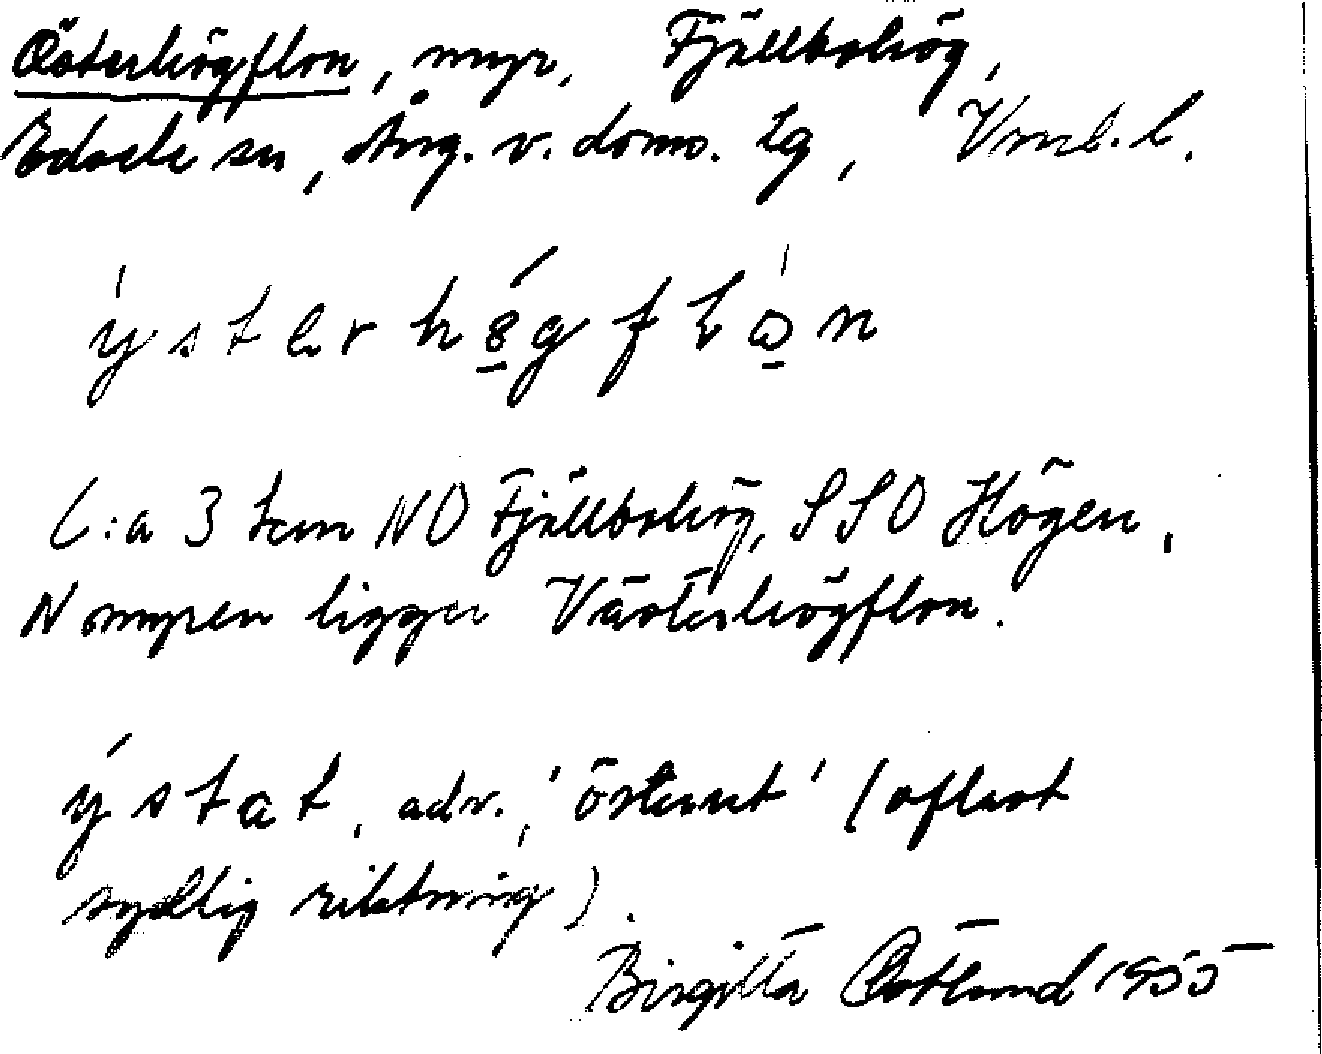 Österhögflon, myr, Fjällbohög,
Edsele sn, Ång. v. doms. lg, Vmb.l.
ýsterhögflon
C:a 3 km NO Fjällbohög, SSO Högen,
N myren ligger Västerhögflon.
ýstat, adv., 'österut' (oftast
sydlig riktning)
Birgitta Östlund 1955